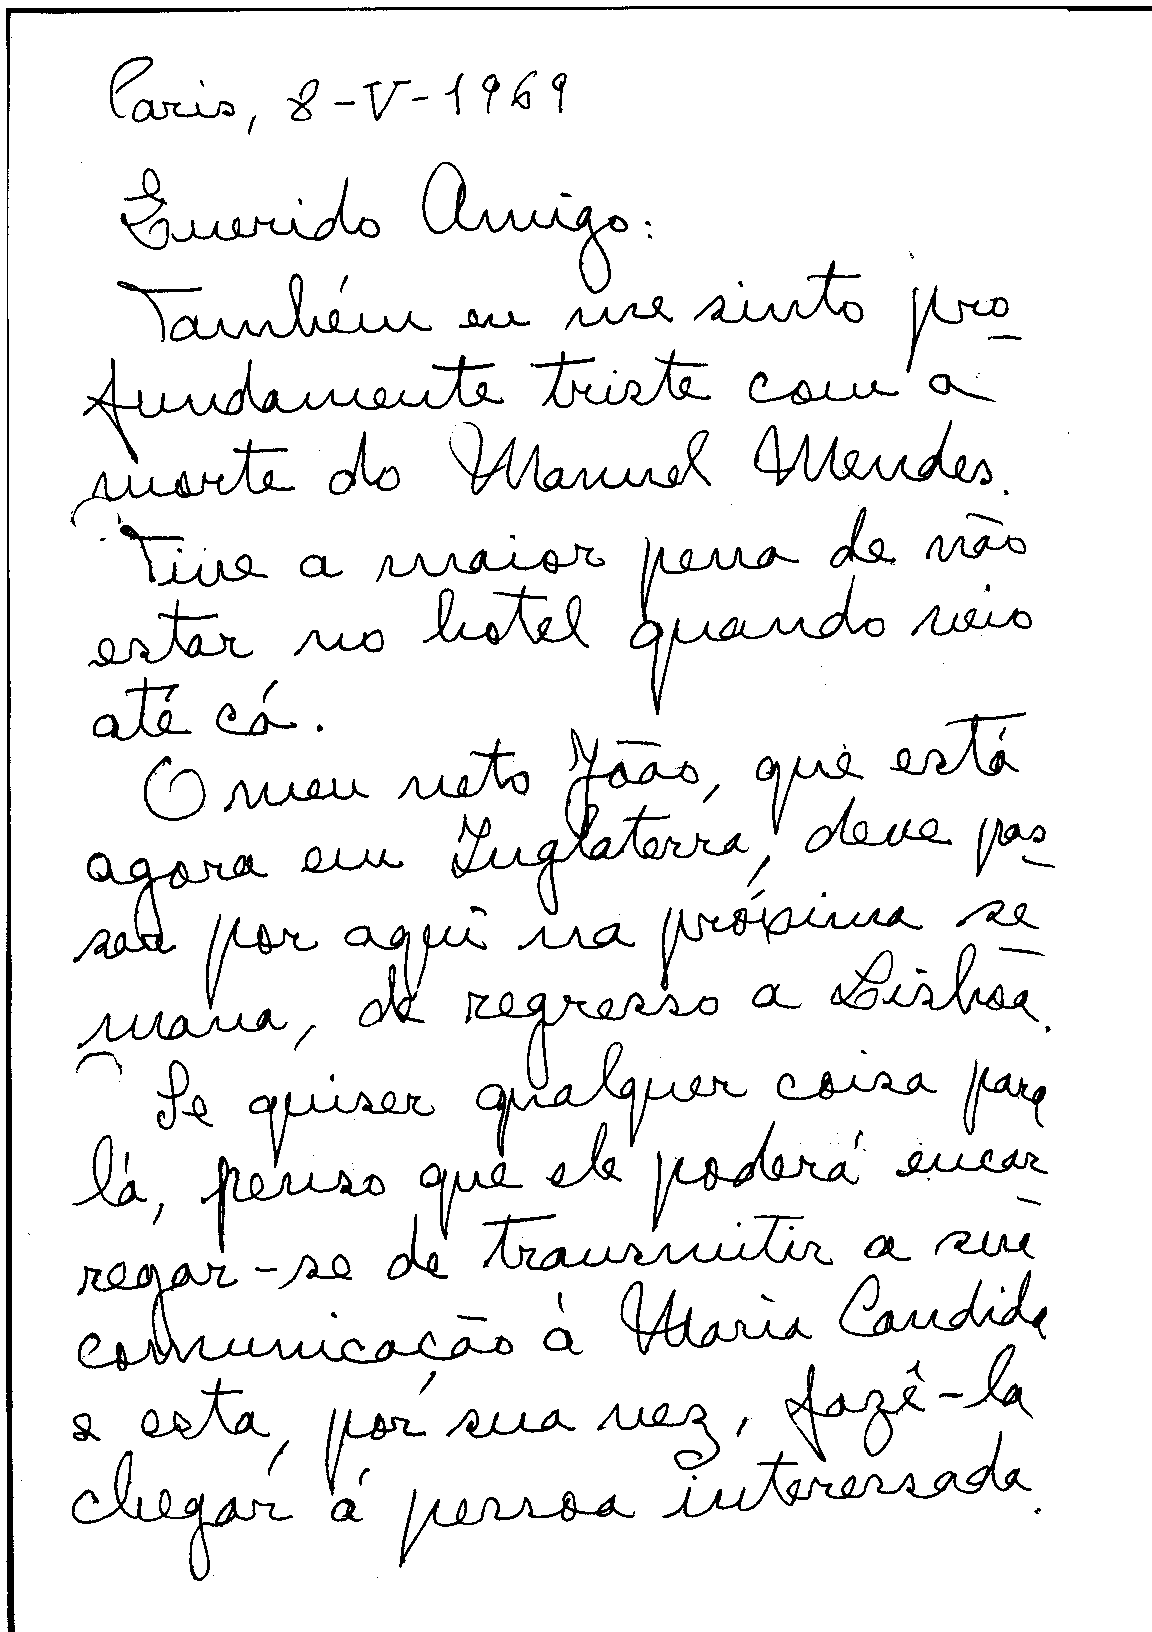 Paris, 8-V-1969
Querido Amigo:
Também eu me sinto pro
fundamente triste com a
morte do Manuel Mendes.
Tive a maior pena de não
estar no hotel quando veio
até cá.
O meu neto João, que está
agora em Inglaterra, deve pas
sar por aqui na próxima se
mana, de regresso a Lisbôa.
Se quiser qualquer coisa para
lá, penso que ele poderá encar
regar-se de transmitir a sua
comunicação à Maria Candida
e esta, por sua vez, fazê-la
chegar á pessoa interessada.